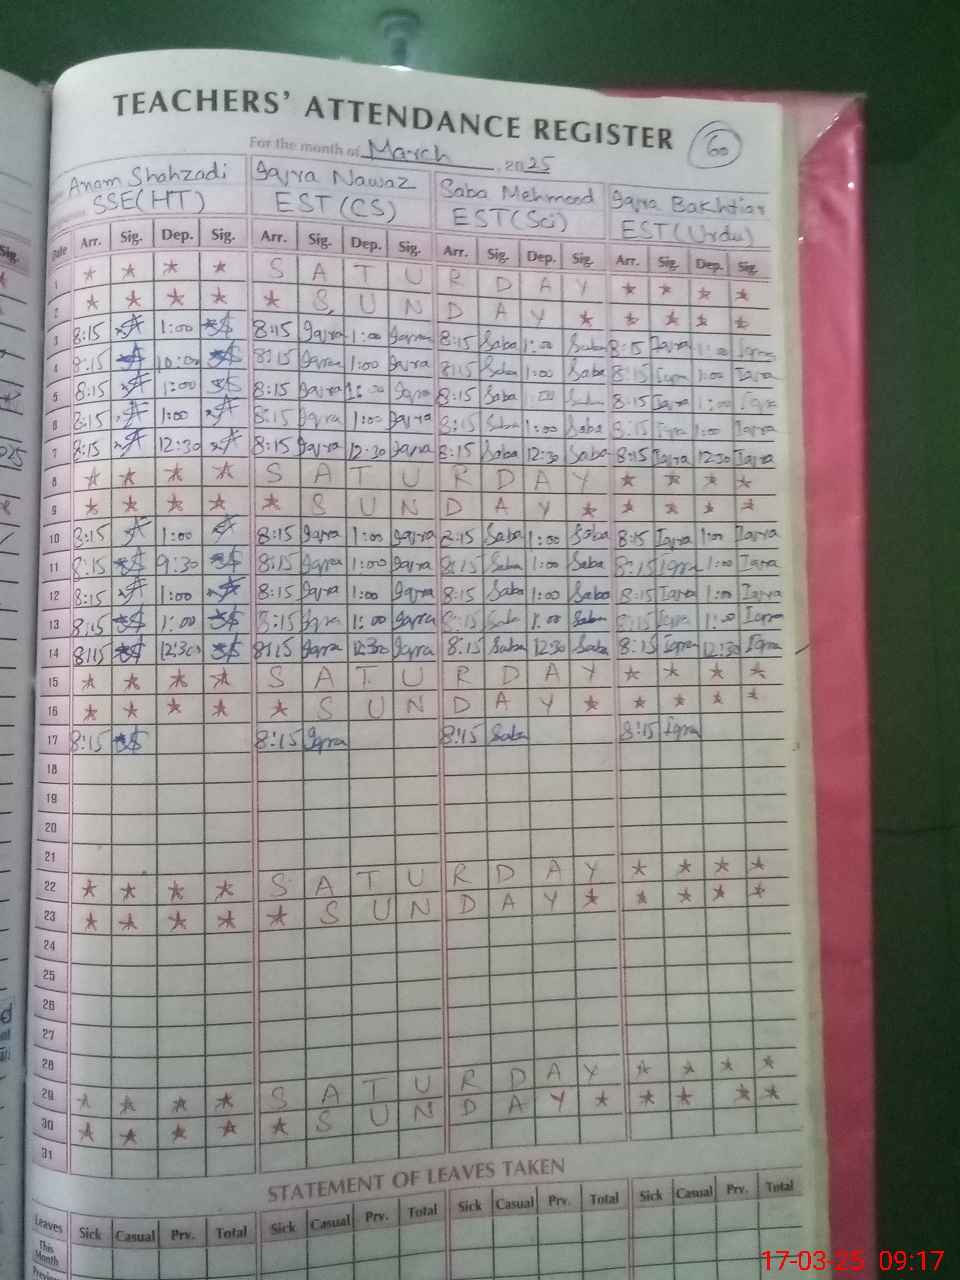 TEACHERS' ATTENDANCE REGISTER
60
For the month of March, 2025
Anam Shahzadi Iqra Nawaz Saba Mehmood Iqra Bakhtiar
SSE(HT) EST(CS) EST(Sci) EST(Urdu)
Date Arr. Sig. Dep. Sig. Arr. Sig. Dep. Sig. Arr. Sig. Dep. Sig. Arr. Sig. Dep. Sig.
1 * * * * S A T U R D A Y * * * *
2 * * * * * S U N D A Y * * * * *
3 8:15 1:00 8:15 Iqra 1:00 Iqra 8:15 Saba 1:00 Saba 8:15 Iqra 1:00 Iqra
4 8:15 10:00 8:15 Iqra 1:00 Iqra 8:15 Saba 1:00 Saba 8:15 Iqra 1:00 Iqra
5 8:15 1:00 8:15 Iqra 1:00 Iqra 8:15 Saba 1:00 Saba 8:15 Iqra 1:00 Iqra
6 8:15 1:00 8:15 Iqra 1:00 Iqra 8:15 Saba 1:00 Saba 8:15 Iqra 1:00 Iqra
7 8:15 12:30 8:15 Iqra 12:30 Iqra 8:15 Saba 12:30 Saba 8:15 Iqra 12:30 Iqra
8 * * * * S A T U R D A Y * * * *
9 * * * * * S U N D A Y * * * * *
10 8:15 1:00 8:15 Iqra 1:00 Iqra 8:15 Saba 1:00 Saba 8:15 Iqra 1:00 Iqra
11 8:15 9:30 8:15 Iqra 1:00 Iqra 8:15 Saba 1:00 Saba 8:15 Iqra 1:00 Iqra
12 8:15 1:00 8:15 Iqra 1:00 Iqra 8:15 Saba 1:00 Saba 8:15 Iqra 1:00 Iqra
13 8:15 1:00 8:15 Iqra 1:00 Iqra 8:15 Saba 1:00 Saba 8:15 Iqra 1:00 Iqra
14 8:15 12:30 8:15 Iqra 12:30 Iqra 8:15 Saba 12:30 Saba 8:15 Iqra 12:30 Iqra
15 * * * * S A T U R D A Y * * * *
16 * * * * * S U N D A Y * * * * *
17 8:15 8:15 Iqra 8:15 Saba 8:15 Iqra
18
19
20
21
22 * * * * S A T U R D A Y * * * *
23 * * * * * S U N D A Y * * * * *
24
25
26
27
28
29 * * * * S A T U R D A Y * * * *
30 * * * * * S U N D A Y * * * * *
31
STATEMENT OF LEAVES TAKEN
Leaves Sick Casual Prv. Total Sick Casual Prv. Total Sick Casual Prv. Total Sick Casual Prv. Total
This Month
17-03-25 09:17